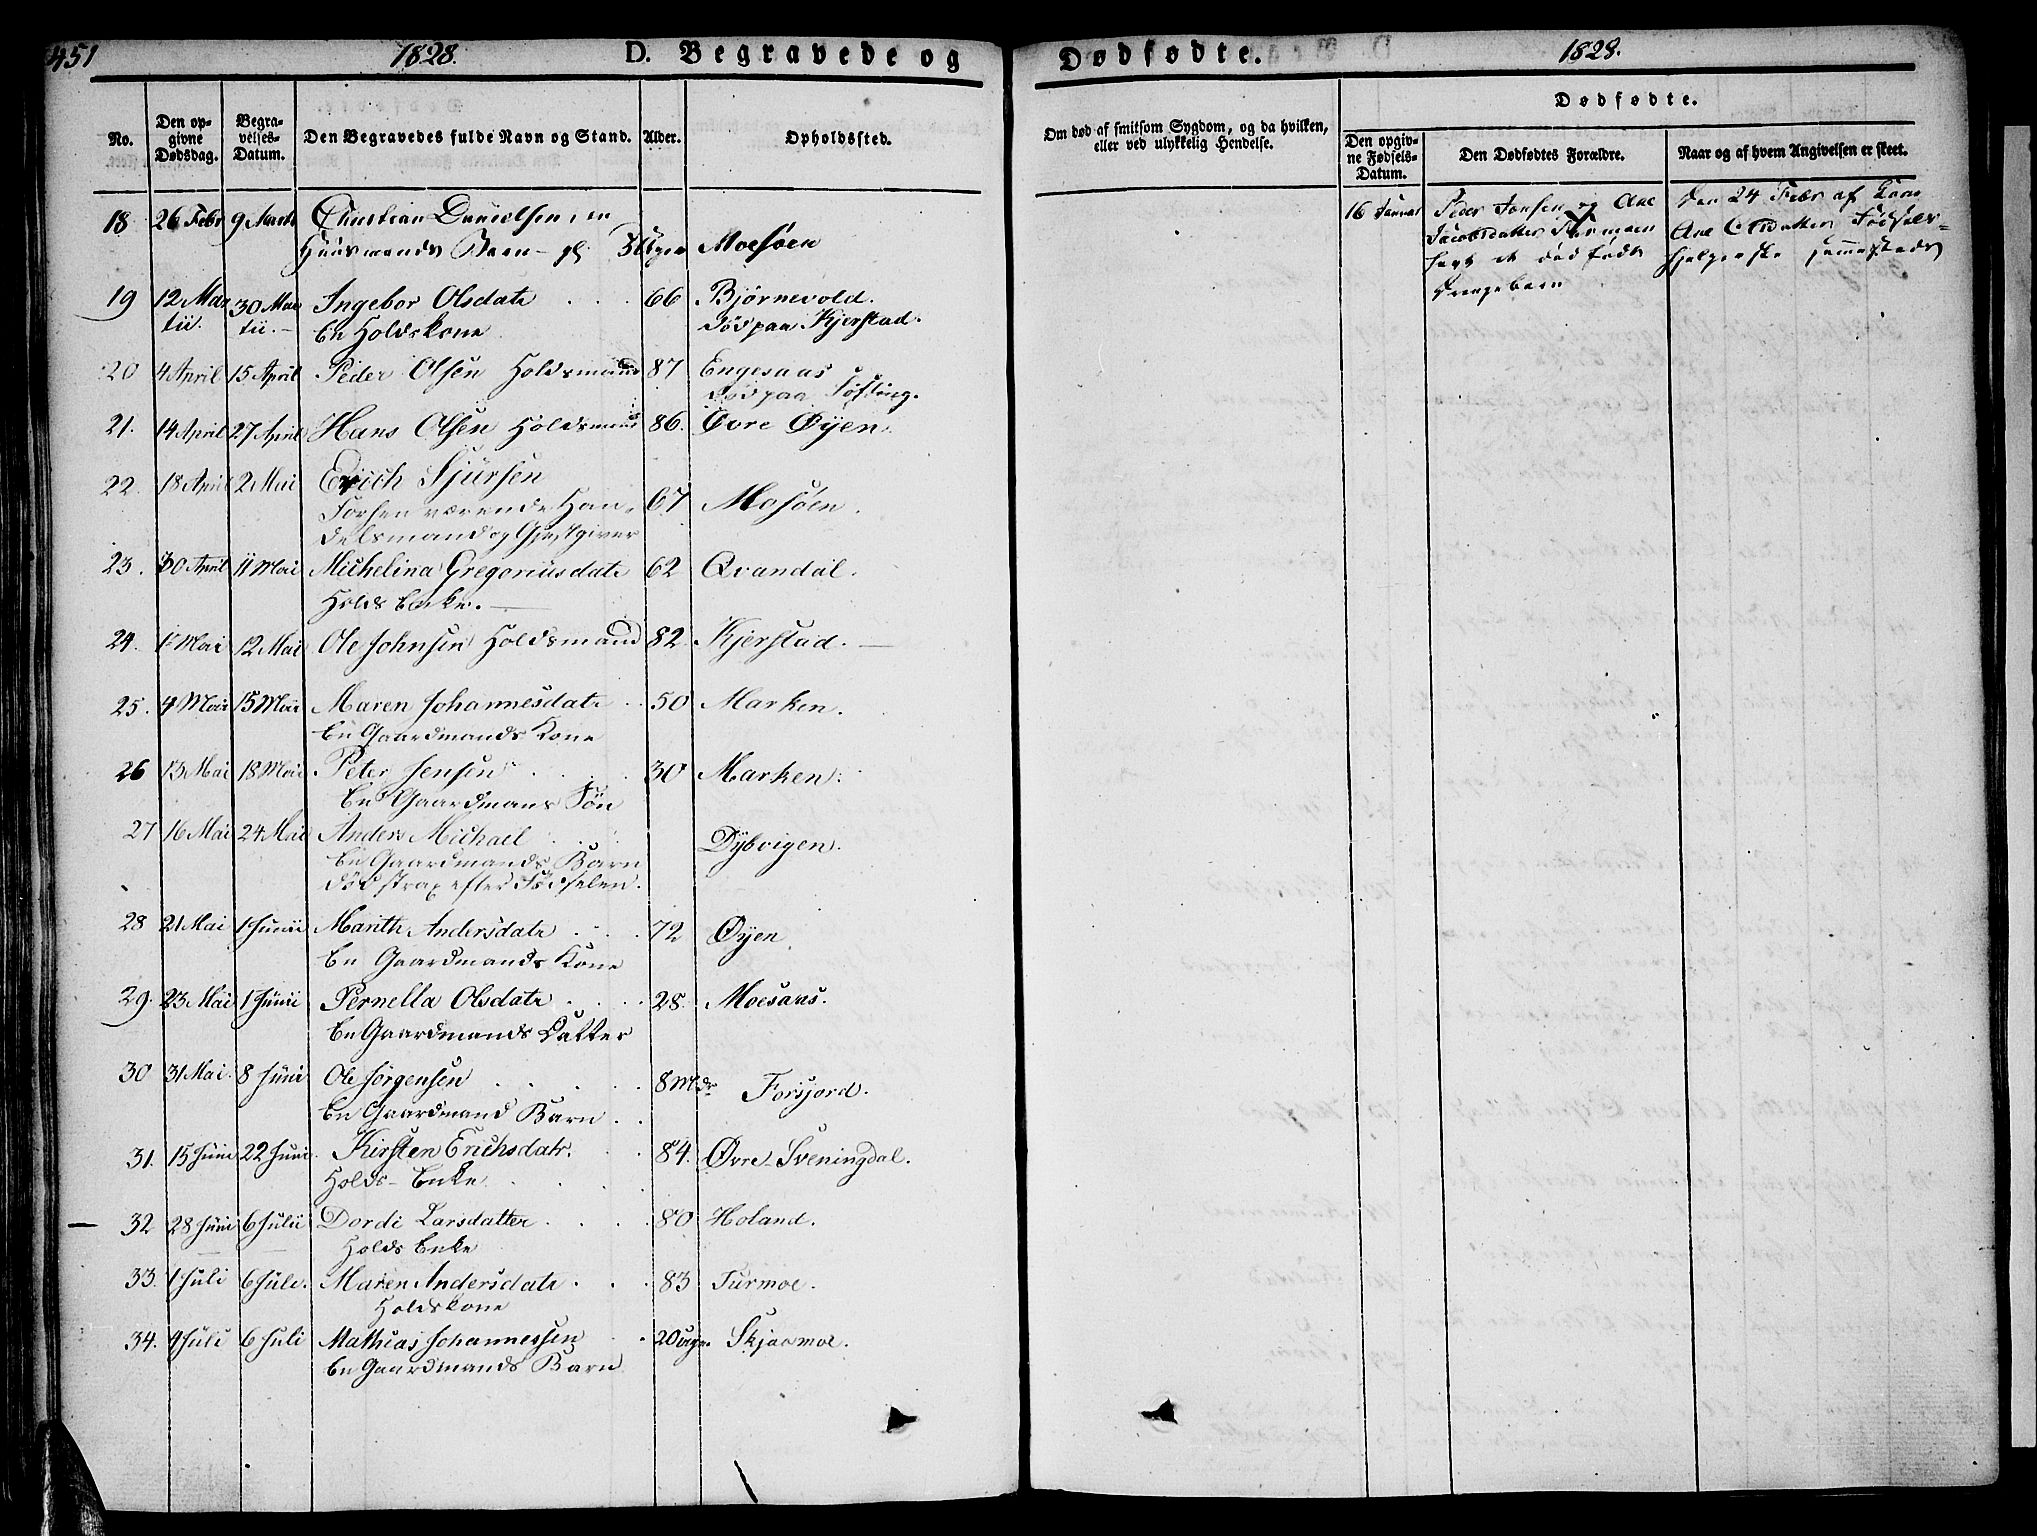 451
1828.
D. Begravede og
No.
Den op-
givne
Dødsdag.
Begra-
velses-
Datum.
Den Begravedes fulde Navn og Stand.
Alder.
Opholdssted.
18 26 Febr 9 Marts Christian Danielsen, en
Huusmands Barn 3 Uger Moesøen
19 12 Mar 30 Mar Ingebor Olsdatr 66 Bjørnevold.
tii. tii. En Holdskone død paa Kjerstad.
20 4 April 15 April Peder Olsen Holdsmand 87 Engesaas
død paa Tøfting.
21. 14 April 27 April Hans Olsen Holdsmand 86. Øvre Øyen.
22. 18 April 2 Mai Erich Sjursen
Forhen værende Han- 67 Mosøen.
delsmand og Gjestgiver
23. 30 April 11 Mai Michelina Gregoriusdatr 62 Qvandal.
Holds Enke.
24. 1 Mai 12 Mai Ole Johnsen Holdsmand 82 Kjerstad.
25. 4 Mai 15 Mai Maren Johannesdatr 50 Marken.
En Gaardmands Kone
26 13 Mai 18 Mai Peter Jensen 30 Marken.
En Gaardmans Søn
27 16 Mai 24 Mai Anders Michael
En Gaardmands Barn Dybvigen.
død strax efter Fødselen.
28 21 Mai 1 Junii Marith Andersdatr 72 Øyen.
En Gaardmands Kone
29. 23 Mai 1 Junii Pernella Olsdatr 28. Moesaas.
En Gaardmands Datter
30 31 Mai. 8 Juni Ole Jørgensen 8 Mdr Forsjord.
En Gaardmand Barn
31. 15 Juni 22 Juni Kirsten Erichsdatr. 84. Øvre-Sveningdal.
Holds- Enke
32 28 Juni 6 Julii Dordi Larsdatter 80 Holand.
Holds Enke
33. 1 Juli 6 Juli. Maren Andersdatr 83 Turmoe.
Holdskone
34. 4 Juli 6 Juli Mathias Johannessen 20 uger. Skjaamoe.
En Gaardmands Barn
Dødfødte.
1828.
Om død af smitsom Sygdom, og da hvilken,
eller ved ulykkelig Hendelse.
Dødfødte.
Den opgiv-
ne Fødsels-
Datum.
Den Dødfødtes Forældre.
Naar og af hvem Angivelsen er skeet.
16 Januar Peder Jonsen og Ane Den 24 Febr af
Jacobsdatter Ane Fødsels-
et dødfødt hjelperske sammesteds
Drengebarn